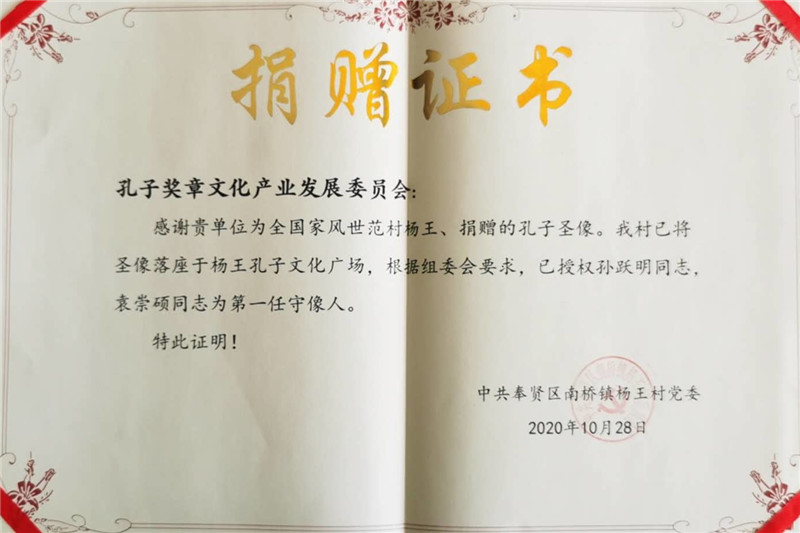 捐赠证书
孔子奖章文化产业发展委员会：
感谢贵单位为全国家风世范村杨王、捐赠的孔子圣像。我村已将
圣像落座于杨王孔子文化广场，根据组委会要求，已授权孙跃明同志，
袁崇硕同志为第一任守像人。
特此证明！
中共奉贤区南桥镇杨王村党委
2020年10月28日